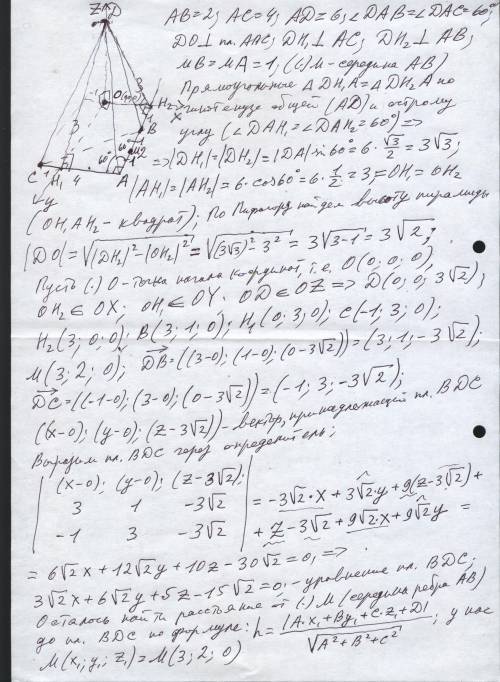 AB=2; AC=4; AD=6, ∠DAB=∠DAC=60°,
DO⊥ пл. ; DH₁⊥ AC, DH₂⊥ AB;
MB=MA=1; ( (·) M-середина AB)
Прямоугольные △DH₁A=△DH₂A по
гипотенузе общей (AD) и острому
углу (∠DAH₁=∠DAH₂=60°) ⇒
⇒|DH₁|=|DH₂|=|DA| sin 60°=6·√3/2=3√3;
|AH₁|=|AH₂|=6·cos60°=6·1/2=3=OH₁=OH₂
(OH₁AH₂ - квадрат); По Пифагору найдем высоту пирамиды
|DO|=√(|DH₁|²-|OH₂|²)=√((3√3)²-3²)=3√(3-1)=3√2;
Пусть (·) O-точка начала координат, т.е. O(0; 0; 0),
OH₂∈OX; OH₁∈OY; OD∈OZ ⇒ D(0; 0; 3√2);
H₂(3; 0; 0); B(3; 1; 0); H₁(0; 3; 0); C(-1; 3; 0);
M(3; 2; 0); DB=((3-0); (1-0); (0-3√2))=(3; 1; -3√2);
DC=((-1-0); (3-0); (0-3√2))=(-1; 3; -3√2);
((x-0); (y-0); (z-3√2)) - вектор, принадлежащий пл. BDC
Выразим пл. BDC через определитель;
| (x-0); (y-0); (z-3√2) |
| 3 1 -3√2 | = -3√2·x + 3√2·y + 9(z-3√2) +
| -1 3 -3√2 | + z - 3√2 + 9√2·x + 9√2y =
= 6√2x + 12√2y + 10z - 30√2 = 0, ⇒
3√2x + 6√2y + 5z - 15√2 = 0, - уравнение пл. BDC;
Осталось найти расстояние от (·) M (середина ребра AB)
до пл. BDC по формуле: h = |A·x₁+By₁+C·z₁+D| / √(A²+B²+C²); у нас
M(x₁; y₁; z₁)=M(3; 2; 0)